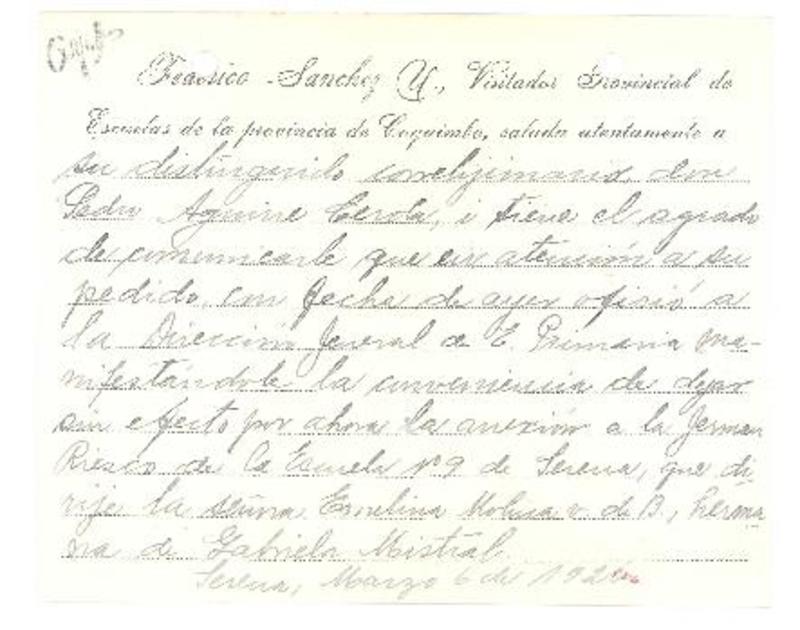 Federico Sanchez Y., Visitador Provincial de
Escuelas de la provincia de Coquimbo, saluda atentamente a
su distinguido correlijionario, don
Pedro Aguirre Cerda, i tiene el agrado
de comunicarle que en atención a su
pedido, con fecha de ayer ofició a
la Dirección Jeneral de E. Primaria ma-
nifestándole la conveniencia de dejar
sin efecto por ahora la anexión a la Jerman
Riesco de la Escuela Nº 9 de Serena, que di-
rije la señora Emelina Molina v. de B., herma-
na de Gabriela Mistral.
Serena, Marzo 6 de 192